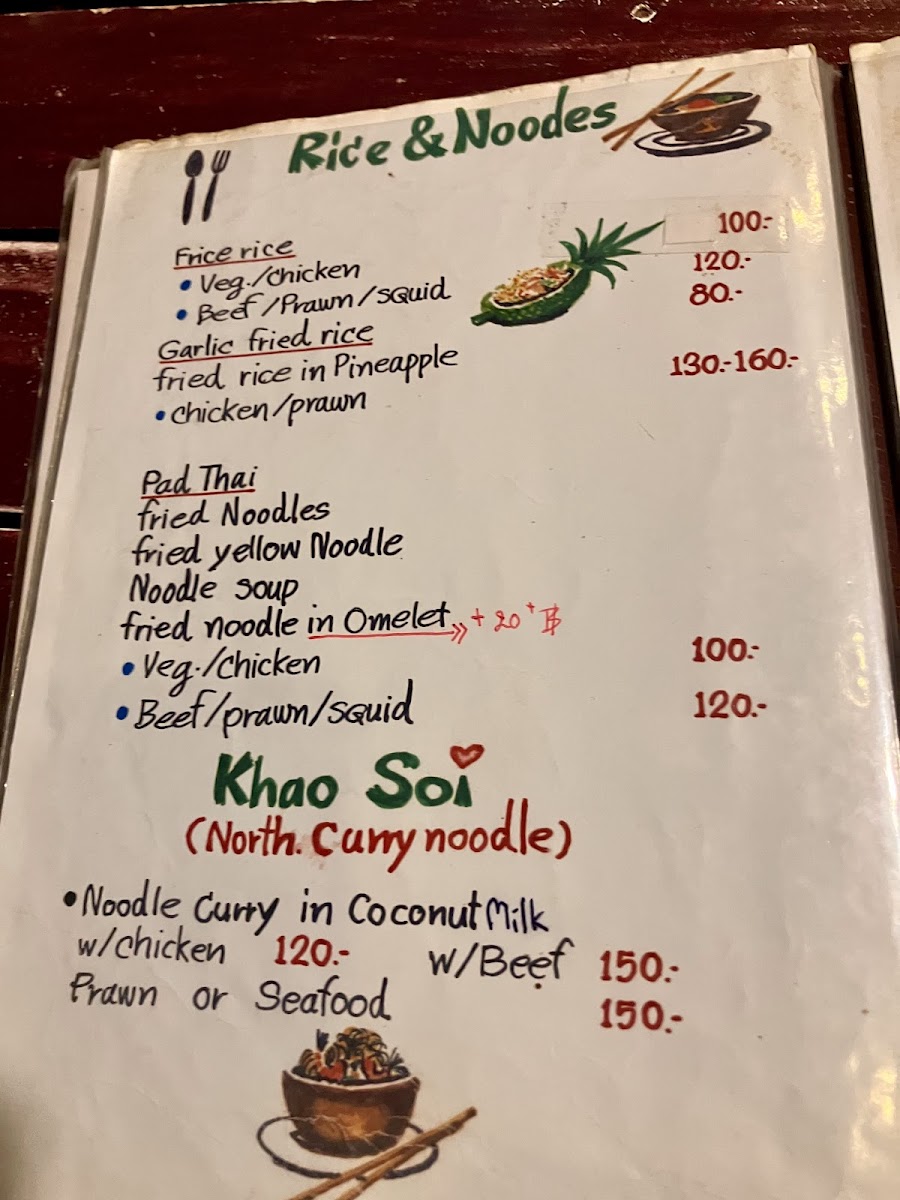 Rice & Noodes
Frice rice
• Veg./Chicken 100.-
• Beef/Prawn/squid 120.-
Garlic fried rice 80.-
fried rice in Pineapple
• chicken/prawn 130.-160.-
Pad Thai
fried Noodles
fried yellow Noodle
Noodle soup
fried noodle in Omelet + 20+ ฿
• Veg./chicken 100.-
• Beef/prawn/squid 120.-
Khao Soi
(North. Curry noodle)
• Noodle Curry in Coconut Milk
w/chicken 120.- w/Beef 150.-
Prawn or Seafood 150.-